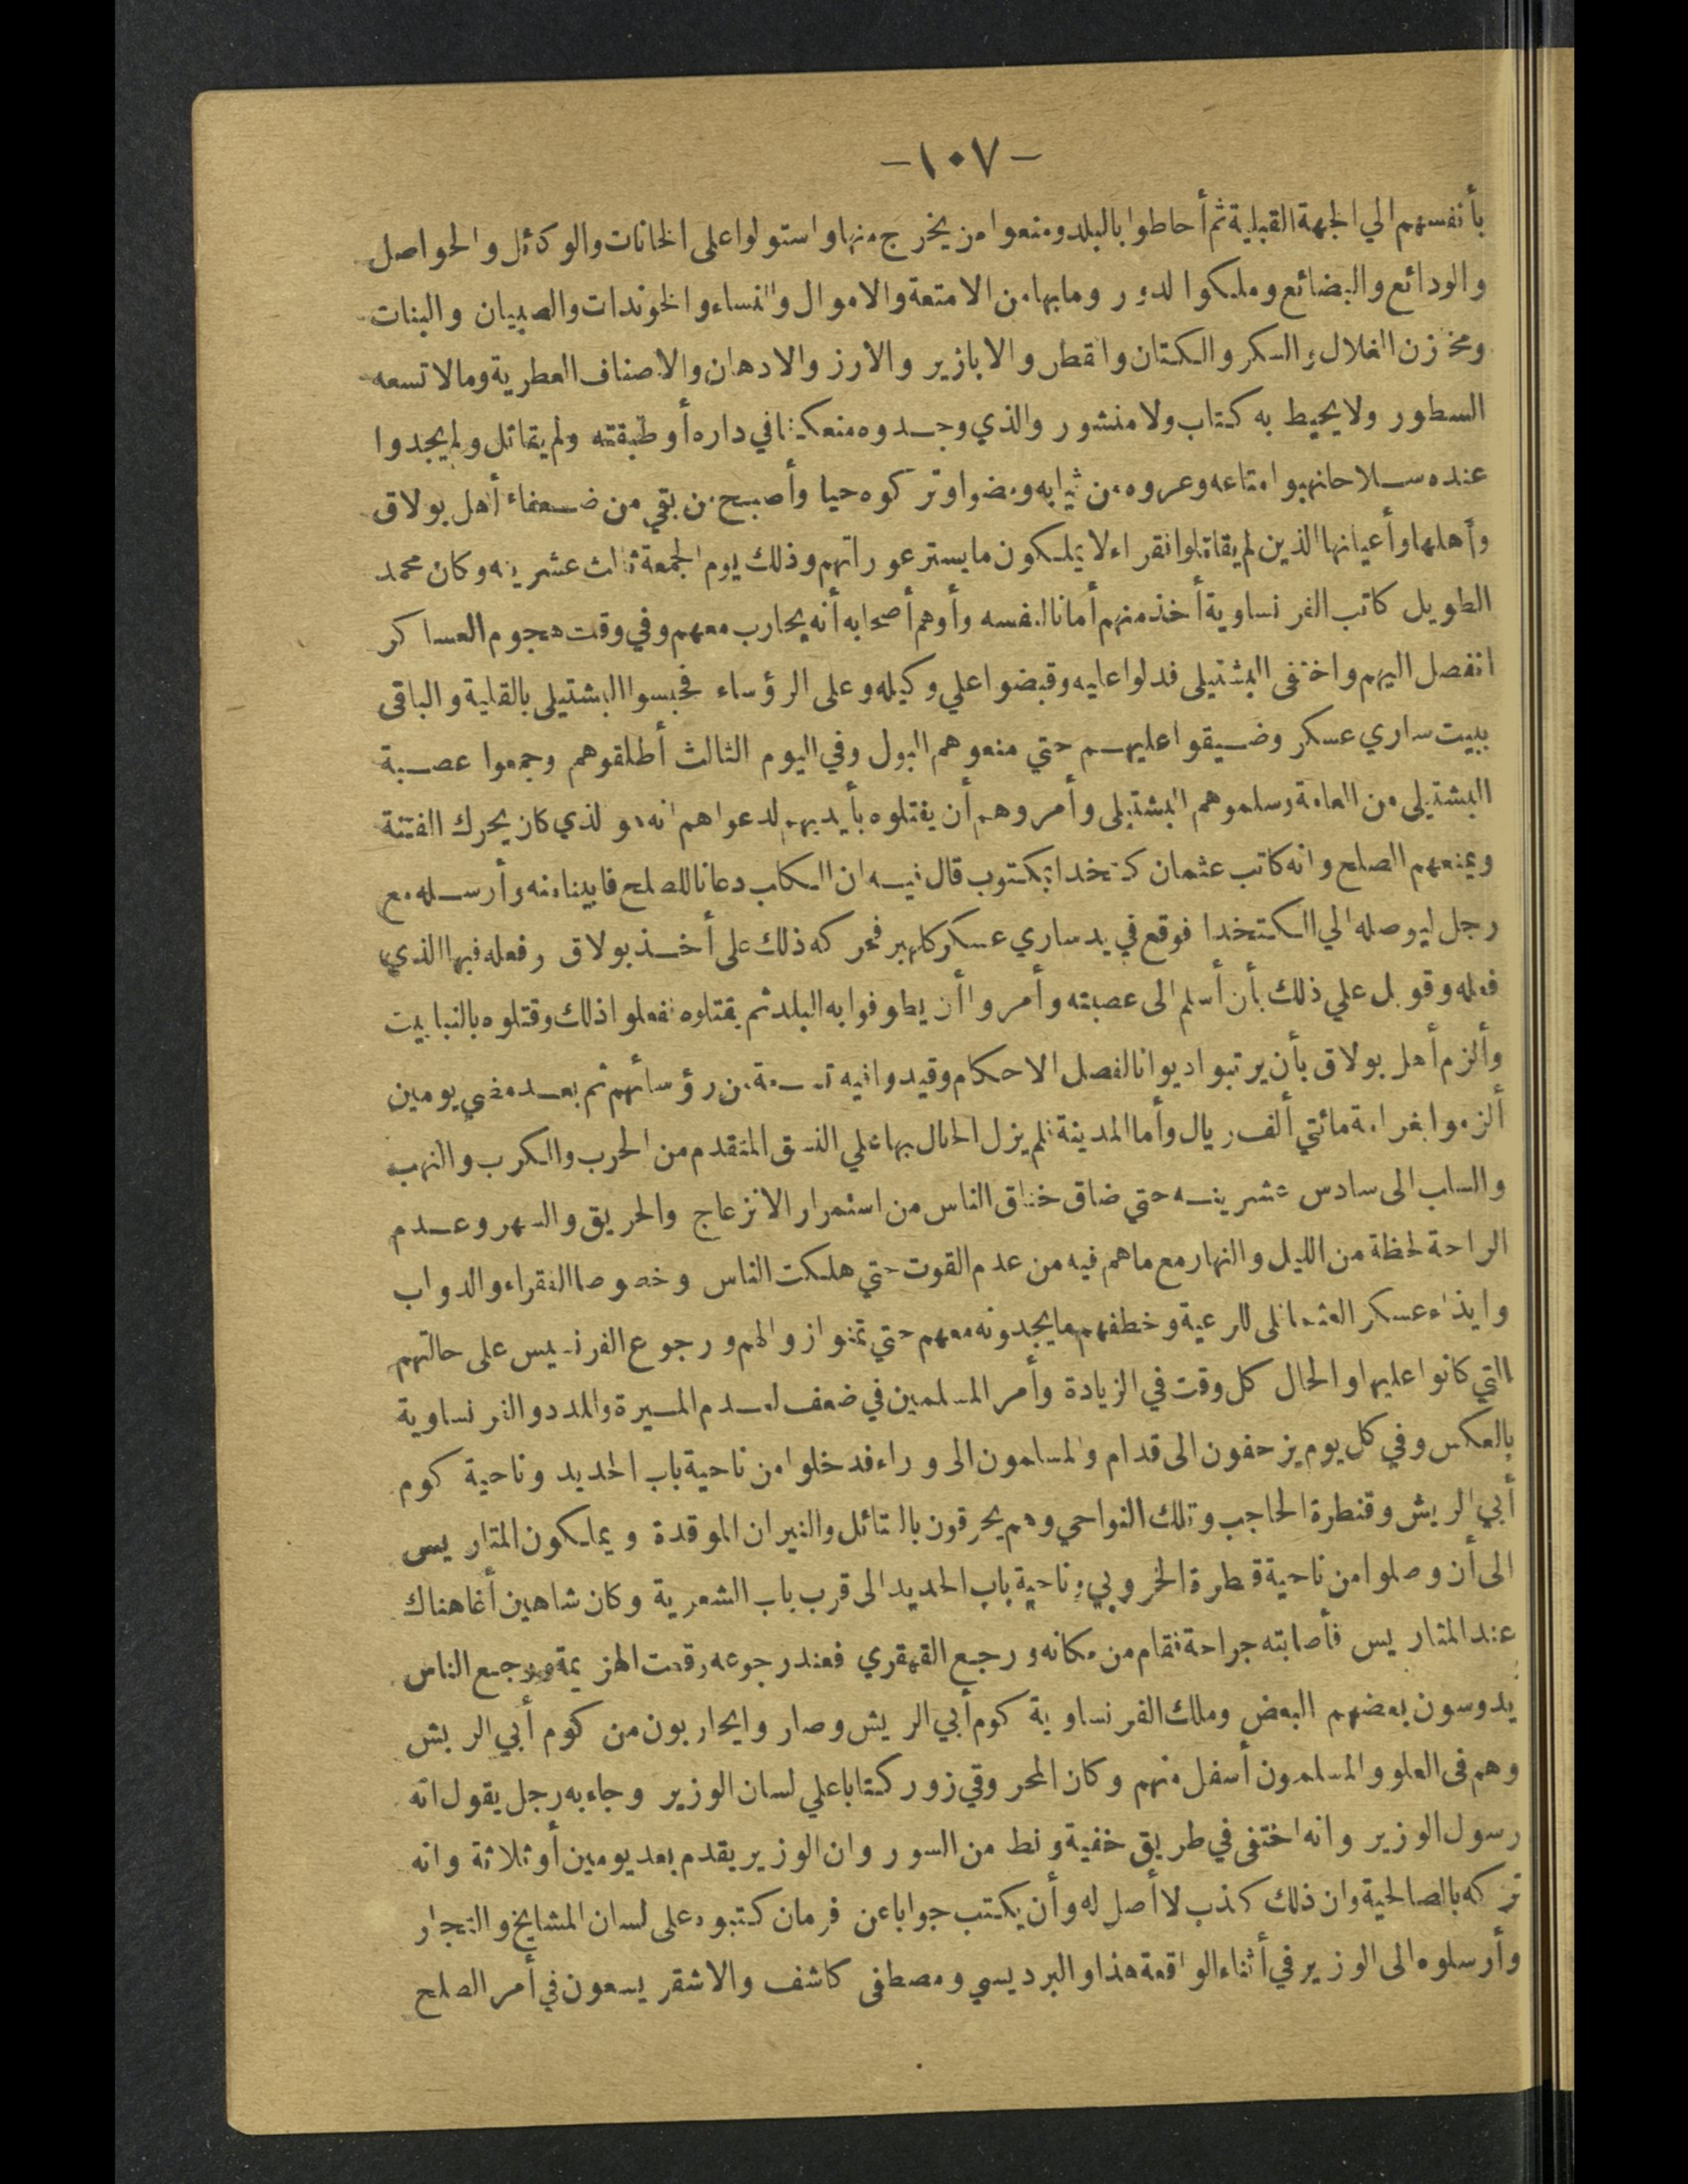 -١٠٧-
بأنفسهم الي الجهة القبلية ثم أحاطوا بالبلد ومنعوا من يخرج منها واستولوا على الخانات والوكائل والحواصل
والودائع والبضائع وملكوا الدور وما بها من الامتعة والاموال والنساء والخوندات والصبيان والبنات
ومخازن الغلال والسكر والكتان والقطن والابازير والارز والادهان والاصناف العطرية ومالا تسعه
السطور ولا يحيط به كتاب ولا منشور والذي وجدوه منعكفا في داره أو طبقته ولم يقاتل ولم يجدوا
عنده سلاحا نهبوا متاعه وعروه من ثيابه ومضوا وتركوه حيا وأصبح من بقي من ضعفاء أهل بولاق
وأهلها وأعيانها الذين لم يقاتلوا فقراء لا يملكون ما يستر عوراتهم وذلك يوم الجمعة ثالث عشرينه وكان محمد
الطويل كاتب الفرنساوية أخذ منهم أمانا لنفسه وأوهم أصحابه أنه يحارب معهم وفي وقت هجوم العساكر
انفصل اليهم واختفى البشتيلى فدلوا عليه وقبضوا علي وكيله وعلى الرؤساء فحبسوا البشتيلى بالقلعة والباقى
ببيت ساري عسكر وضيقوا عليهم حتي منعوهم البول وفي اليوم الثالث أطلقوهم وجمعوا عصبة
البشتيلى من العامة وسلموهم البشتيلى وأمروهم أن يقتلوه بأيديهم لدعواهم انه هو الذي كان يحرك الفتنة
ويمنعهم الصلح وانه كاتب عثمان كتخدا بمكتوب قال فيه ان الكلب دعانا للصلح فابينا منه وأرسله مع
رجل ليوصله الي الكتخدا فوقع في يد ساري عسكر كلهبر فحركه ذلك على أخذ بولاق وفعله فيها الذي
فعله وقوبل علي ذلك بأن أسلم الى عصبته وأمروا أن يطوفوا به البلد ثم يقتلوه ففعلوا ذلك وقتلوه بالنبابيت
وألزم أهل بولاق بأن يرتبوا ديوانا لفصل الاحكام وقيدوا فيه تسعة من رؤسائهم ثم بعد مضي يومين
ألزموا بغرامة مائتي ألف ريال وأما المدينة فلم يزل الحال بها علي النسق المتقدم من الحرب والكرب والنهب
والسلب الى سادس عشرينه حتي ضاق خناق الناس من استمرار الانزعاج والحريق والسهر وعدم
الراحة لحظة من الليل والنهار مع ما هم فيه من عدم القوت حتي هلكت الناس وخصوصا الفقراء والدواب
وايذاء عسكر العثمانلى للرعية وخطفهم ما يجدونه معهم حتي تمنوا زوالهم ورجوع الفرنسيس على حالتهم
التي كانوا عليها والحال كل وقت في الزيادة وأمر المسلمين في ضعف لعدم الميرة والمدد والفرنساوية
بالعكس وفي كل يوم يزحفون الى قدام والمسلمون الى وراء فدخلوا من ناحية باب الحديد وناحية كوم
أبي الريش وقنطرة الحاجب وتلك النواحي وهم يحرقون بالفتائل والنيران الموقدة ويملكون المتاريس
الى أن وصلوا من ناحية قنطرة الخروبي وناحية باب الحديد الى قرب باب الشعرية وكان شاهين أغا هناك
عند المتاريس فأصابته جراحة فقام من مكانه ورجع القهقري فعند رجوعه وقعت الهزيمة ورجع الناس
يدوسون بعضهم البعض وملك الفرنساوية كوم أبي الريش وصاروا يحاربون من كوم أبي الريش
وهم فى العلو والمسلمون أسفل منهم وكان المحروقي زور كتابا علي لسان الوزير وجاء به رجل يقول انه
رسول الوزير وانه اختفى في طريق خفية ونط من السور وان الوزير يقدم بعد يومين أو ثلاثة وانه
تركه بالصالحية وان ذلك كذب لا أصل له وأن يكتب جوابا عن فرمان كتبوه على لسان المشايخ والتجار
وأرسلوه الى الوزير في أثناء الواقعة هذا والبرديسي ومصطفى كاشف والاشقر يسعون في أمر الصلح